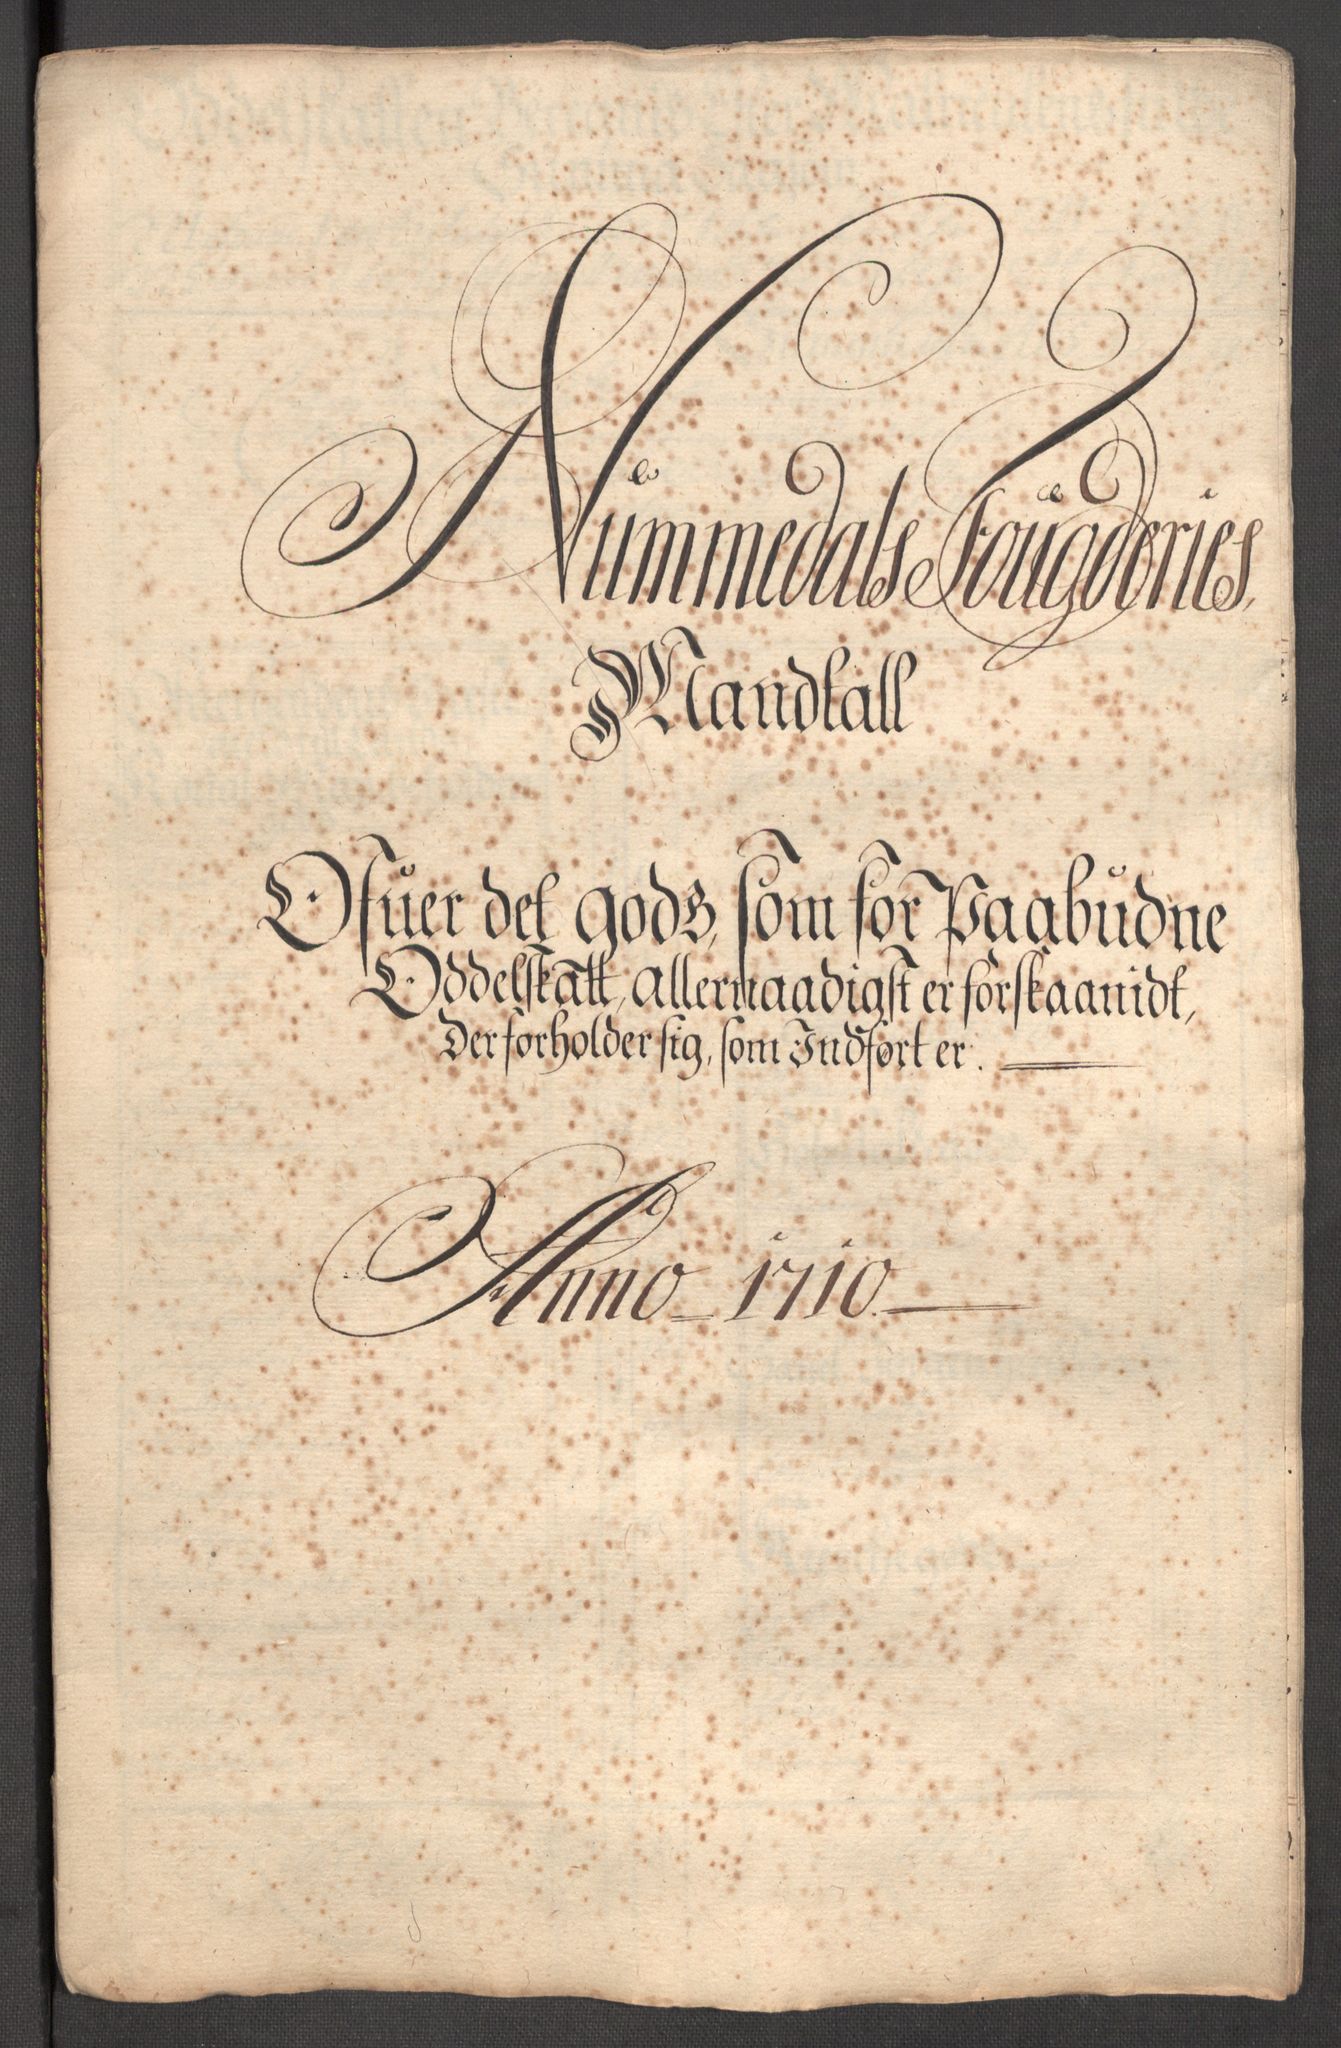 Nummedals Fougderies
Mandtall
Ofuer det gods, som for Paabudne
Oddelskatt, allernaadigst er forskaanidt,
Der forholder sig, som Indført er.
Anno 1710